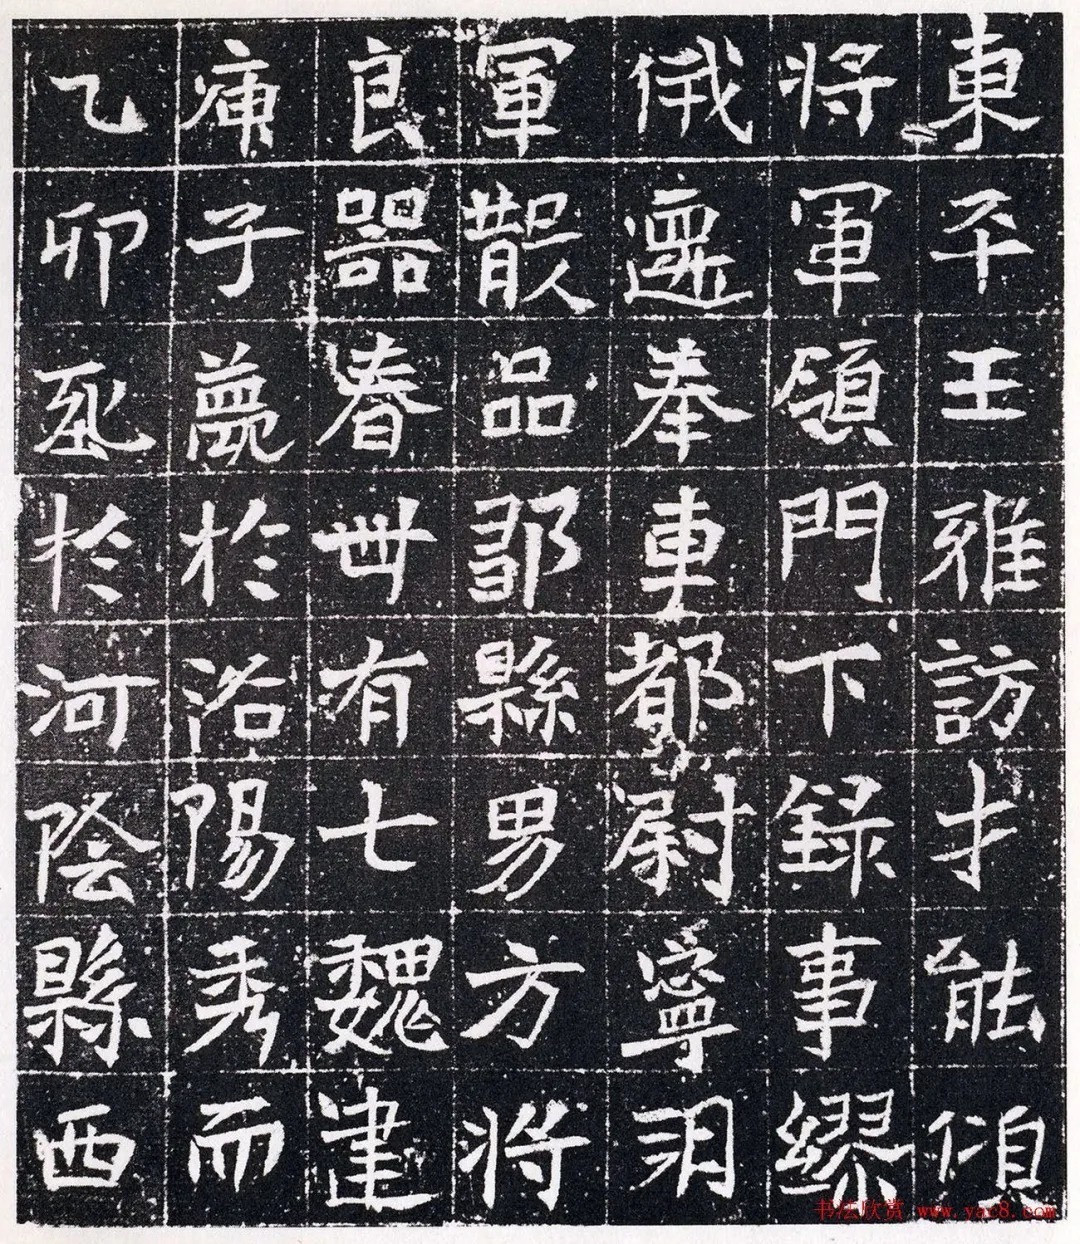 東平王雅訪才能傾
將軍領門下錄事繆
俄遷奉車都尉寧朔
軍散品邬縣男方將
良器春卌有七魏建
庚子薨於洛陽秀而
乙卯窆於河陰縣西
书法欣赏 www.yac8.com